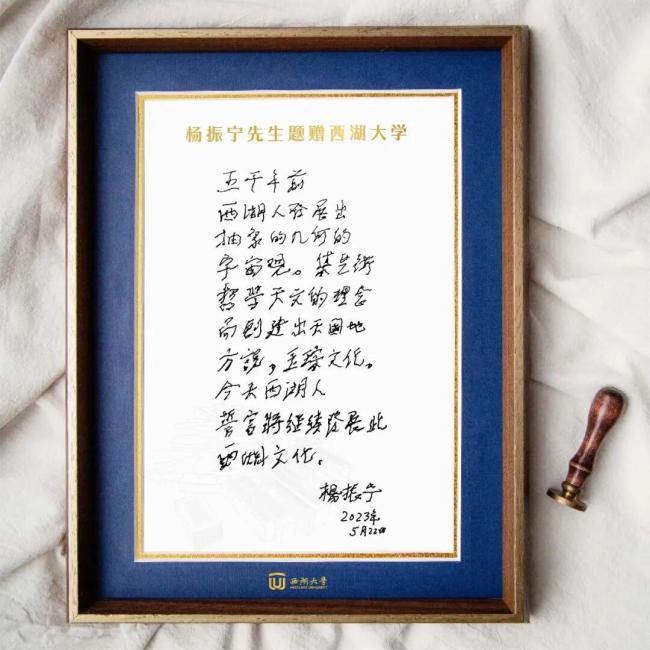 杨振宁先生题赠西湖大学
五千年前
西湖人發展出
抽象的几何的
宇宙观。集艺術
哲學天文的理念
而创建出天圓地
方說，玉琮文化。
今天西湖人
誓言將继續發展此
西湖文化。
楊振宁
2023年
5月22日
西湖大學
WESTLAKE UNIVERSITY